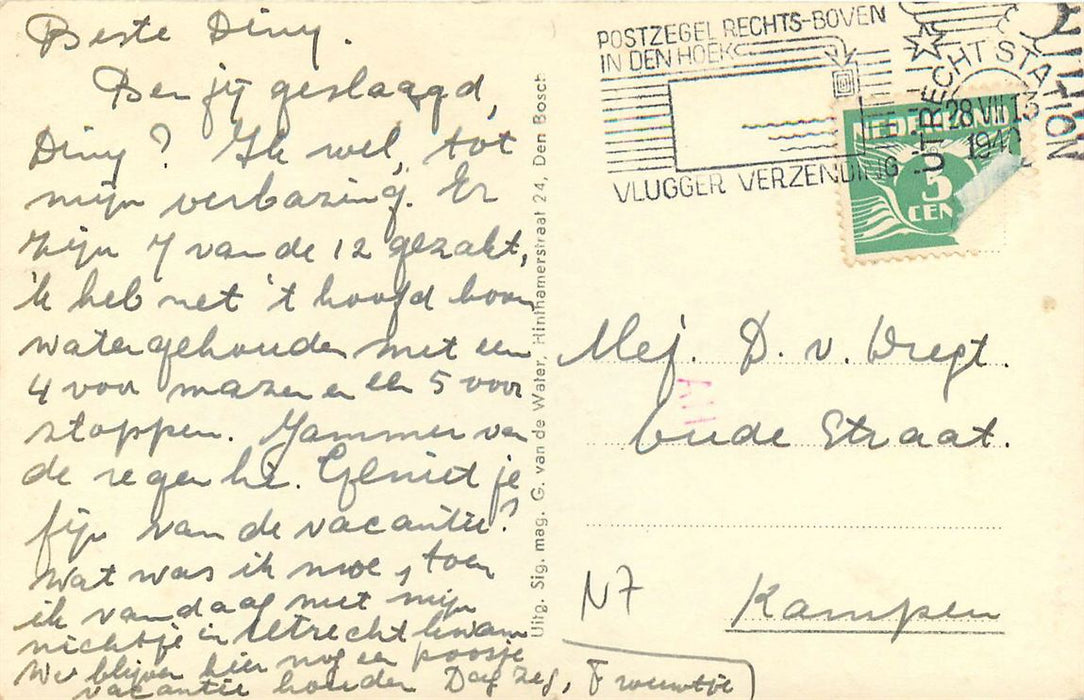 Beste Diny.
Ben jij geslaagd,
Diny? Ik wel, tot
mijn verbazing. Er
zijn 7 van de 12 gezakt,
'k heb net 't hoofd boven
water gehouden met een
4 voor mazen en een 5 voor
stoppen. Jammer van
de regen hè. Geniet je
fijn van de vacantie?
Wat was ik moe, toen
ik vandaag met mijn
nichtje in Utrecht kwam
We blijven hier nog een poosje
vacantie houden Dag zeg,
Uitg. Sig. mag. G. van de Water, Hinthamerstraat 24, Den Bosch
POSTZEGEL RECHTS-BOVEN
IN DEN HOEK
VLUGGER VERZENDING
UTRECHT STATION
28 VII 13
194
NEDERLAND
3
CEN
Mej. D. v. Dregt.
Oude Straat.
N7
Kampen